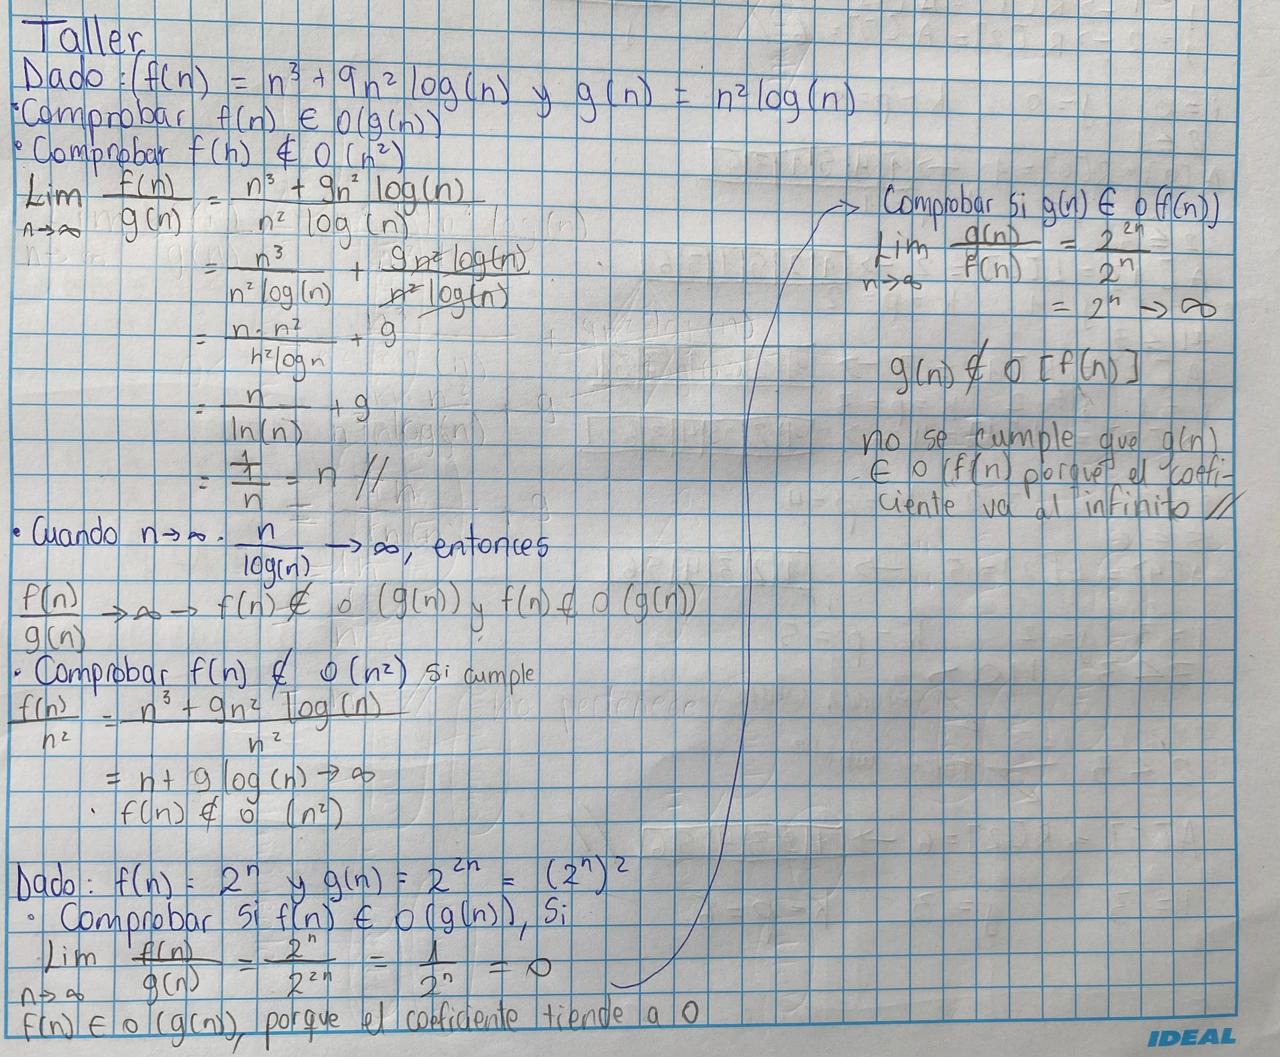 Taller
Dado: (f(n) = n³ + 9n² log(n) y g(n) = n² log(n)
• Comprobar f(n) ∈ O(g(n))
• Comprobar f(n) ∉ O(n²)
Lim n→∞ f(n)/g(n) = (n³ + 9n² log(n))/(n² log(n))
= n³/(n² log(n)) + 9n² log(n)/(n² log(n))
= n·n²/(n² log n) + 9
= n/ln(n) + 9
= (1/1)/n = n //
• Cuando n→∞. n/log(n) → ∞, entonces
f(n)/g(n) → ∞ → f(n) ∉ o (g(n)) y f(n) ∉ O (g(n))
• Comprobar f(n) ∉ O(n²) si cumple
f(n)/n² = (n³ + 9n² log(n))/n²
= n + 9 log(n) → ∞
. f(n) ∉ o (n²)
Dado: f(n) = 2ⁿ y g(n) = 2²ⁿ = (2ⁿ)²
• Comprobar Si f(n) ∈ O(g(n)), Si
Lim n→∞ f(n)/g(n) = 2ⁿ/2²ⁿ = 1/2ⁿ = 0
f(n) ∈ O (g(n)), porque el coeficiente tiende a 0
→ Comprobar Si g(n) ∈ O f(n))
Lim n→∞ g(n)/f(n) = 2²ⁿ/2ⁿ
= 2ⁿ → ∞
g(n) ∉ O [f(n)]
no se cumple que g(n)
∈ O (f(n) porque el coefi-
ciente va al infinito //
IDEAL